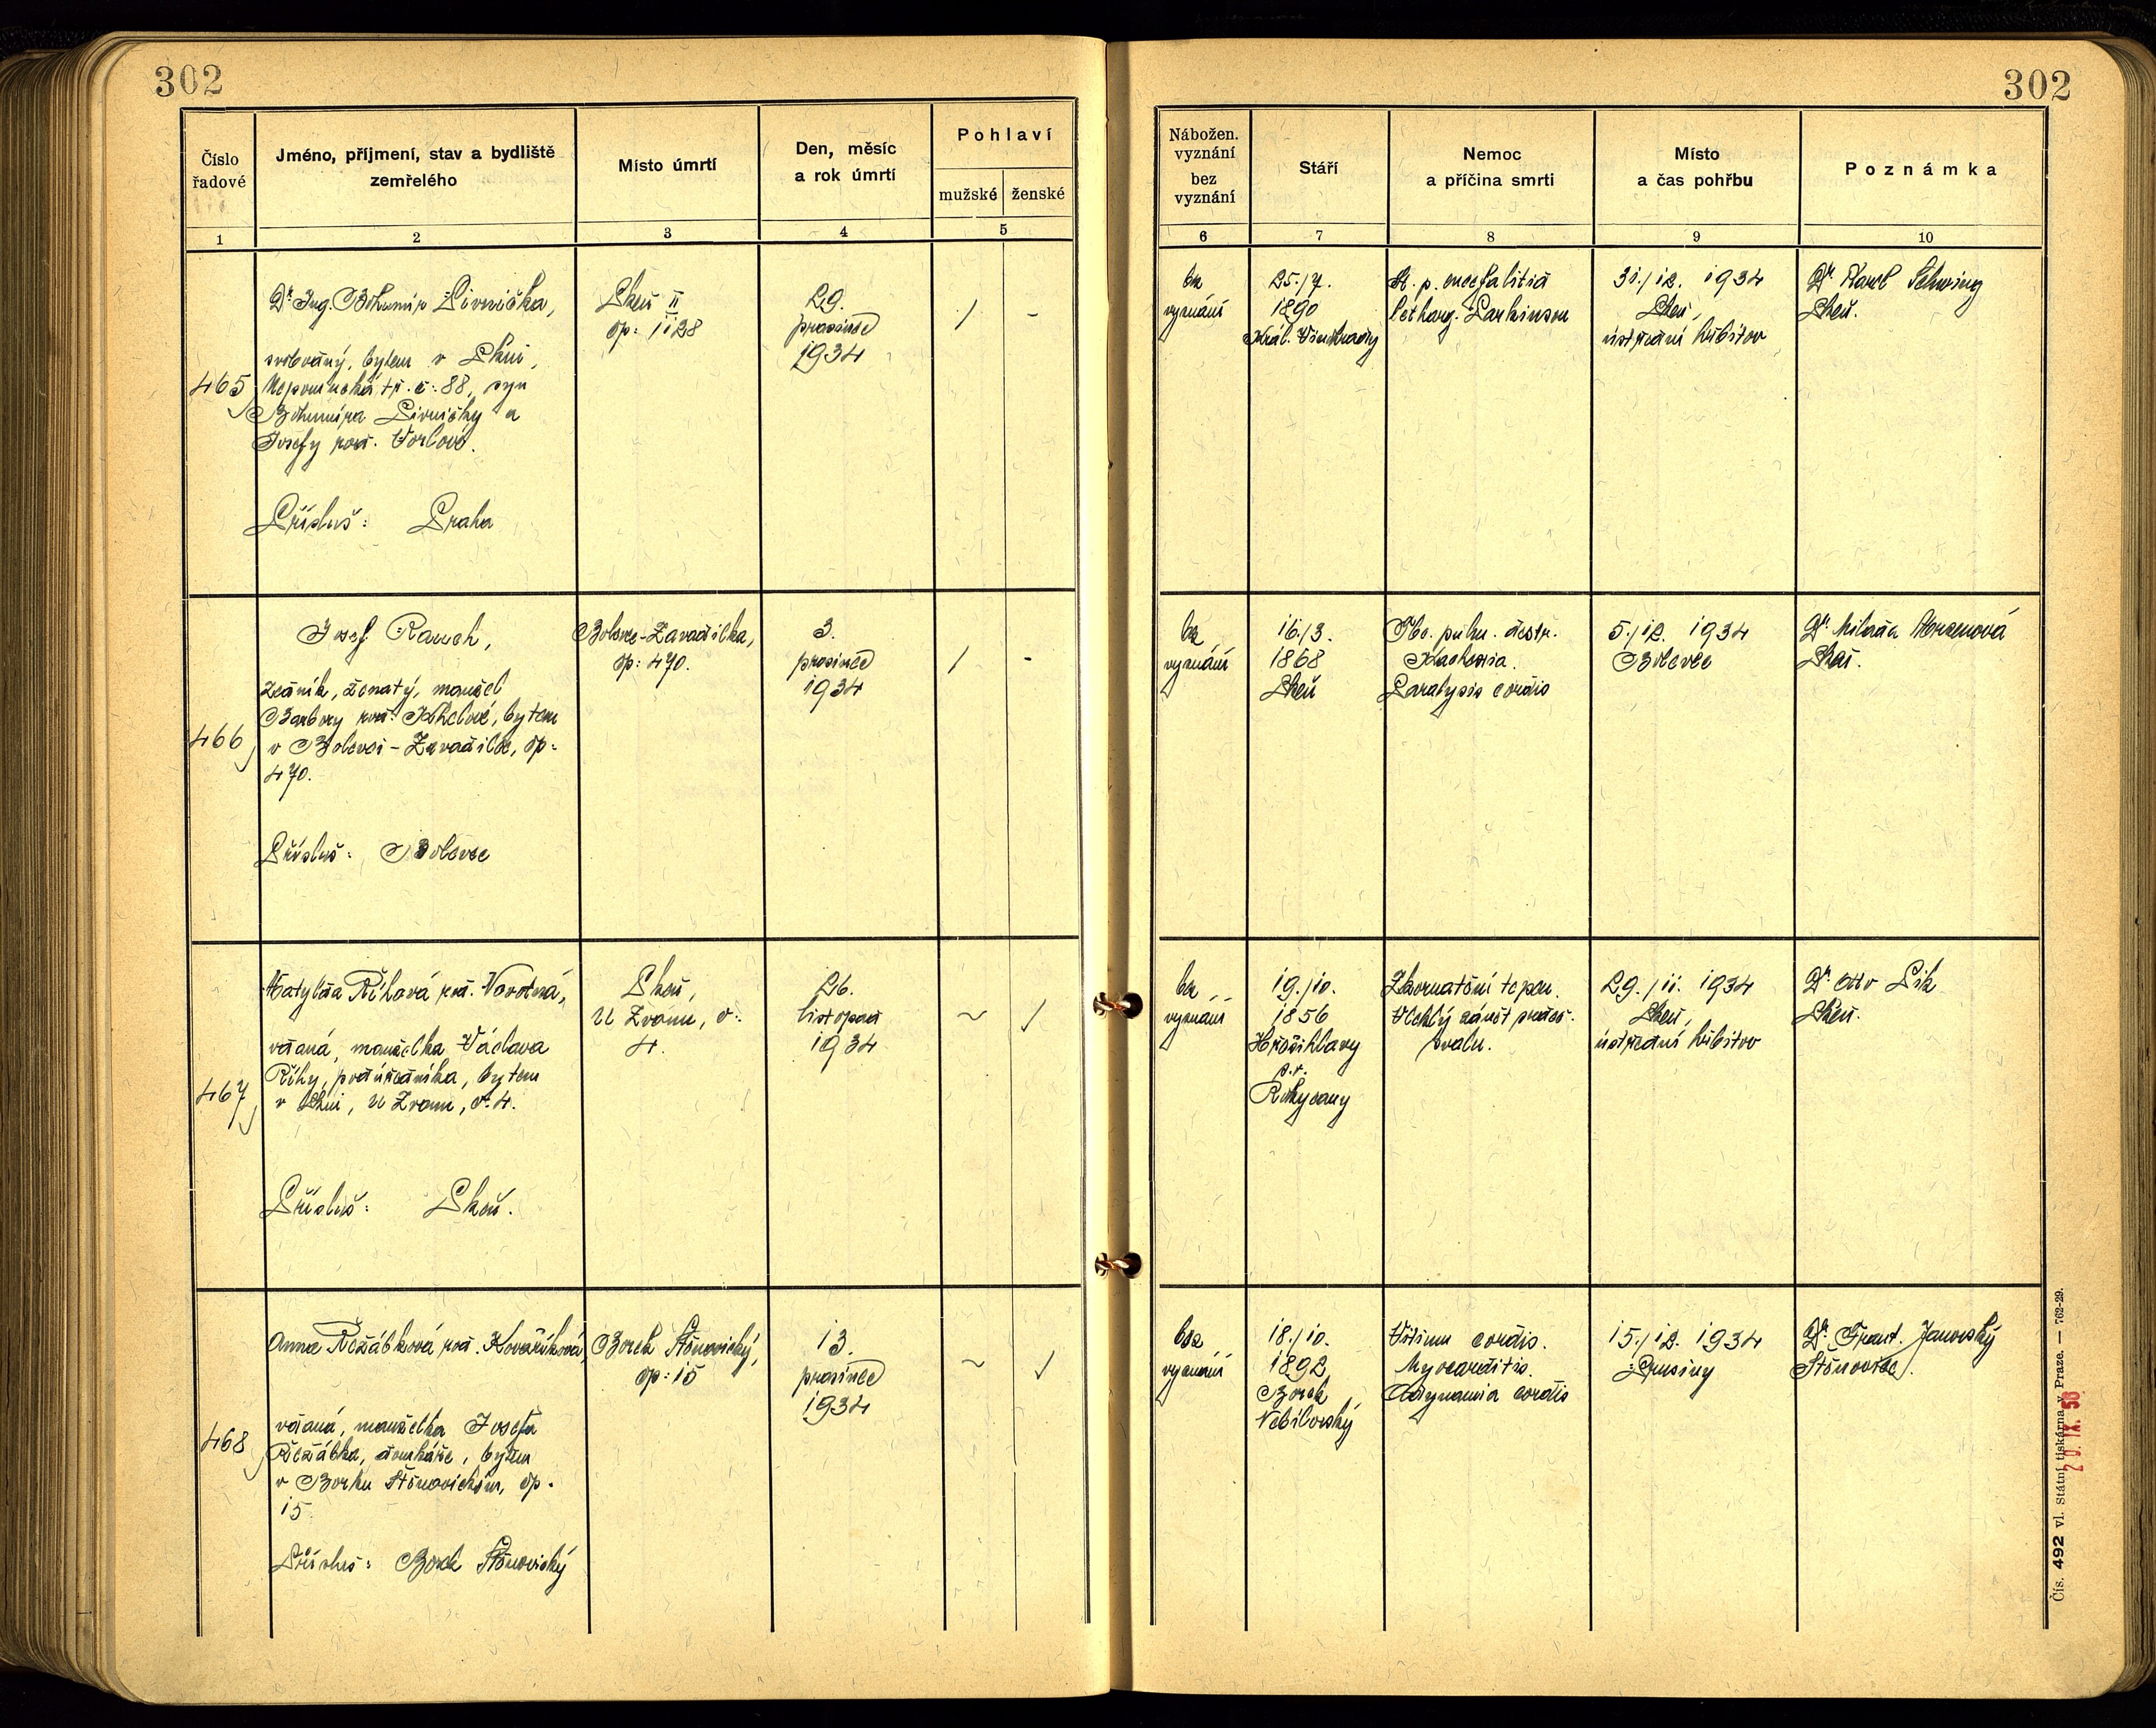 302
Číslo
řadové
Jméno, příjmení, stav a bydliště
zemřelého
Místo úmrtí
Den, měsíc
a rok úmrtí
Pohlaví
mužské
ženské
1
2
3
4
5
465
Dr. Ing. Bohumír Livnička,
bytem v Plzni,
tř. č. 88, syn
Bohumíra Livničky a
Josefy roz. Vorlové.
Přísluš: Praha
Plzeň II
čp: 1128
29.
prosince
1934
/
-
466
Josef Rauch,
zedník, ženatý, manžel
Barbory roz. bytem
v Bolevci-Zavadilce, čp:
470.
Přísluš: Bolevec
Bolevec-Zavadilka,
čp: 470.
3.
prosince
1934
/
-
467
Matylda Říhová roz. Novotná,
vdaná, manželka Václava
Říhy, bytem
v Plzni, U Zvonu, č. 4.
Přísluš: Plzeň.
Plzeň,
U Zvonu, č:
4.
26.
listopad
1934
~
✓
468
Anna Řežábková roz. Kovaříková,
vdaná, manželka Josefa
Řežábka, domkáře, bytem
v Borku Štěnovickém, čp.
15
Přísluš: Borek Štěnovický
Borek Štěnovický,
čp: 15
13.
prosince
1934
~
✓
302
Nábožen.
vyznání
bez
vyznání
Stáří
Nemoc
a příčina smrti
Místo
a čas pohřbu
Poznámka
6
7
8
9
10
bez
vyznání
25./7.
1890
Král. Vinohrady
St. p. encefalitid
letharg. Parkinson
31./12. 1934
Plzeň,
ústřední hřbitov
Dr. Karel Schwing
Plzeň.
bez
vyznání
16./3.
1868
Plzeň
Tbc. pulm. destr.
Kachexia.
Paralysis cordis
5./12. 1934
Bolevec
Dr. Milada
Plzeň.
bez
vyznání
19./10.
1856
Hradihlavy
p. r.
Rokycany
Zkornatění tepen.
Vleklý zánět srdeč.
svalu.
29./11. 1934
Plzeň,
ústřední hřbitov
Dr. Otto Pik
Plzeň.
bez
vyznání
18./10.
1892
Borek
Nebílovský
Vitium cordis.
Myocarditis.
Adynamia cordis
15./12. 1934
Prusiny
Dr. Frant. Janovský
Štěnovice.
Čís. 492 vl. Státní tiskárna v Praze. — 762-29.
20. IX. 56